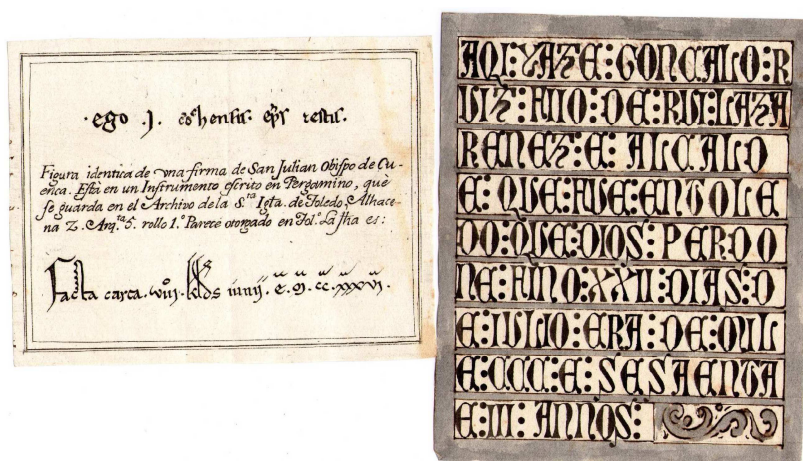 ·ego .J. ꝯchensis. ep̃s testis.
Figura identica de vna firma de San Julian Obispo de Cu-
enca. Està en un Instrumento escrito en Pergamino, què
se guarda en el Archivo de la S.ta Igta. de Toledo, Alhace-
na Z. Arq.ta 5. rollo 1. Parecè otorgado en Tol.o La fha es:
Facta carta. viii. Klds iunii. E. M. CC. XXXVI.
AQI:YAZE:GONCALO:R
VIZ:FIIO:DE:RUI:LAZA
RENEZ:E: ALCALD
E: QUE:FUE:EN TOLE
DO:QUE:DIOS:PERDO
NE:FINO:XXII:DIAS:D
E:IULIO:ERA:DE:MIL
E:CCC:E:SESAENTA
E:III: ANNOS: